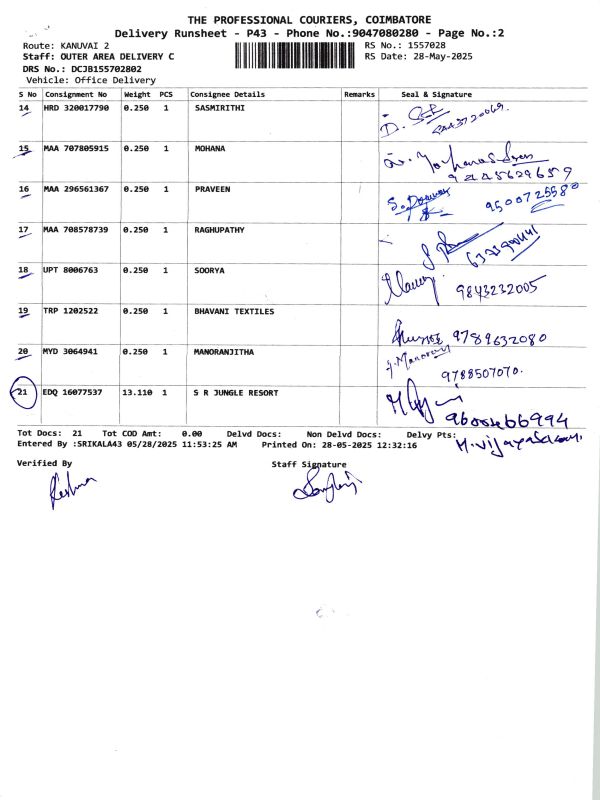 THE PROFESSIONAL COURIERS, COIMBATORE
Delivery Runsheet - P43 - Phone No.:9047080280 - Page No.:2
Route: KANUVAI 2 RS No.: 1557028
Staff: OUTER AREA DELIVERY C RS Date: 28-May-2025
DRS No.: DCJB155702802
Vehicle: Office Delivery
S No Consignment No Weight PCS Consignee Details Remarks Seal & Signature
14 HRD 320017790 0.250 1 SASMIRITHI
15 MAA 707805915 0.250 1 MOHANA
16 MAA 296561367 0.250 1 PRAVEEN 9500725580
17 MAA 708578739 0.250 1 RAGHUPATHY
18 UPT 8006763 0.250 1 SOORYA 9843232005
19 TRP 1202522 0.250 1 BHAVANI TEXTILES 9789632080
20 MYD 3064941 0.250 1 MANORANJITHA 9788507070.
21 EDQ 16077537 13.110 1 S R JUNGLE RESORT
Tot Docs: 21 Tot COD Amt: 0.00 Delvd Docs: Non Delvd Docs: Delvy Pts:
Entered By :SRIKALA43 05/28/2025 11:53:25 AM Printed On: 28-05-2025 12:32:16
Verified By Staff Signature